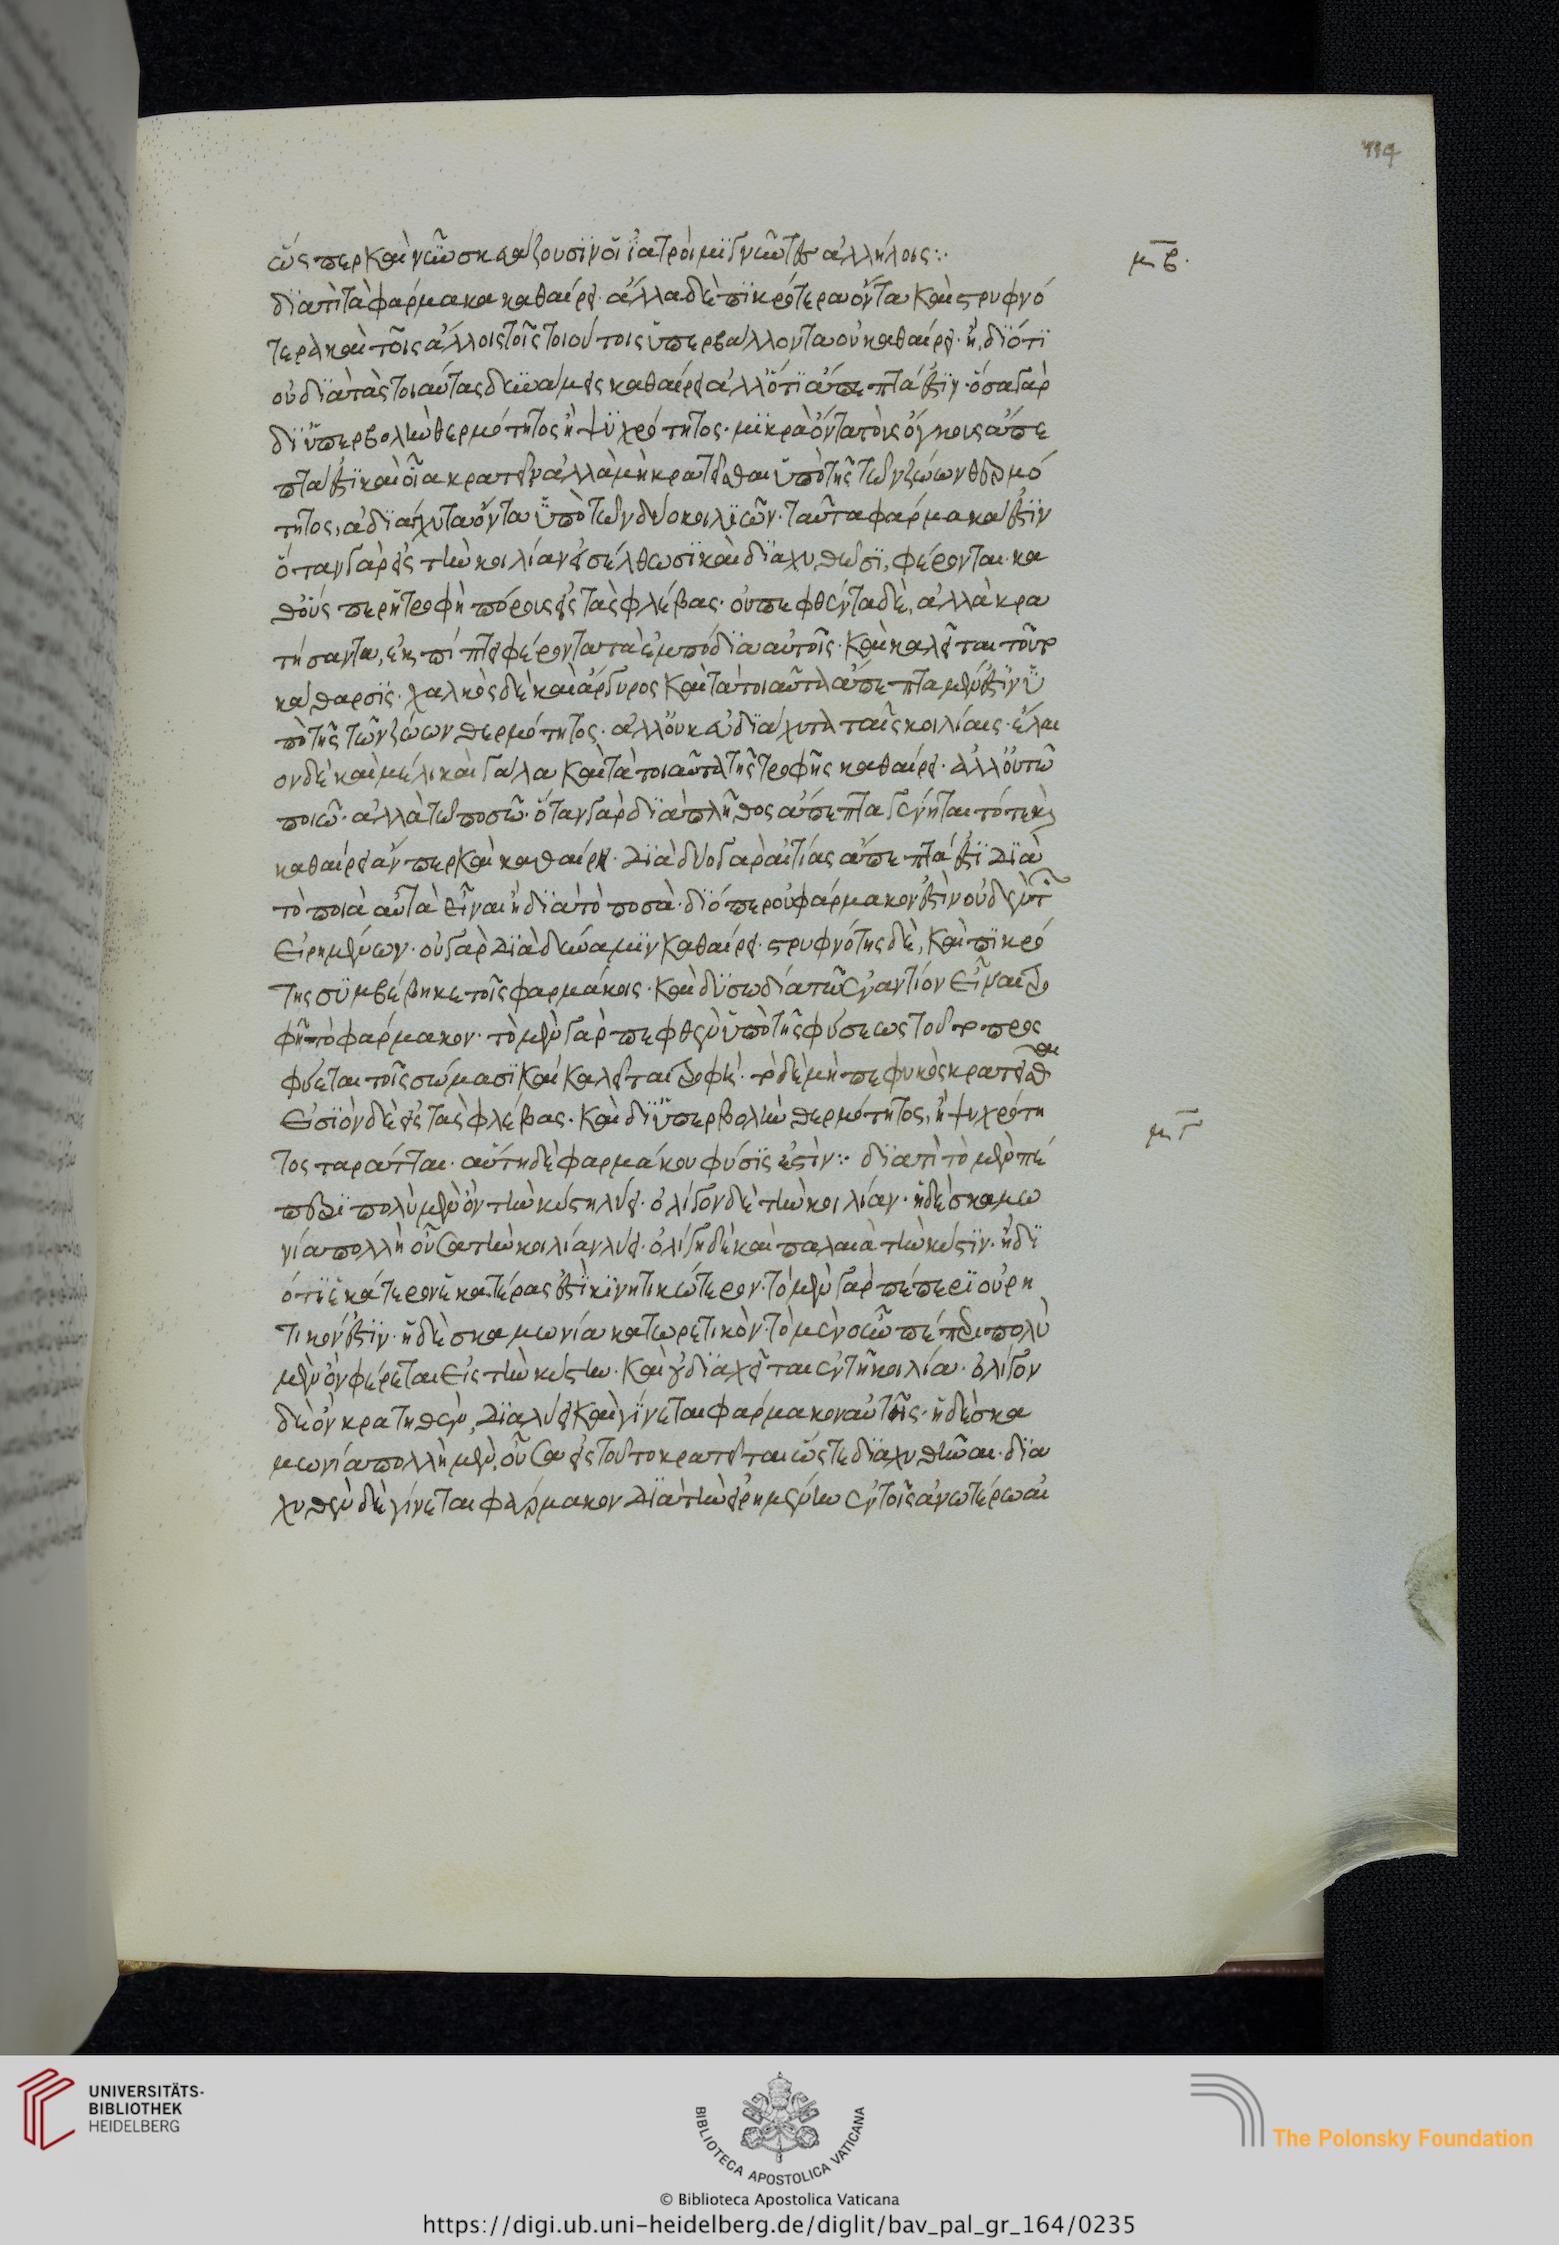 114
ὥσπερ καὶ νῦν σκευάζουσιν οἱ ἰατροὶ μιγνύντες ἀλλήλοις:·
μβ.
διατί τὰ φάρμακα καθαίρει· ἄλλα δὲ πικρότερα ὄντα καὶ στρυφνό
τερα καὶ τοῖς ἄλλοις τοῖς τοιούτοις ὑπερβάλλοντα οὐ καθαίρει· ἢ, διότι
οὐ διὰ τὰς τοιαύτας δυνάμεις καθαίρει ἀλλ' ὅτι ἄπεπτά ἐστιν· ὅσα γὰρ
δι' ὑπερβολὴν θερμότητος ἢ ψυχρότητος· μικρὰ ὄντα τοὺς ὄγκους ἄπε
πτά ἐστι καὶ οἷα κρατεῖν ἀλλὰ μὴ κρατεῖσθαι ὑπὸ τῆς τῶν ζώων θερμό
τητος, ἀδιάχυτα ὄντα ὑπὸ τῶν δύο κοιλιῶν· ταῦτα φάρμακά ἐστιν
ὅταν γὰρ εἰς τὴν κοιλίαν εἰσέλθωσι καὶ διαχυθῶσι, φέρονται· κα
θ' οὕς περ ἡ τροφὴ πόρους εἰς τὰς φλέβας· οὐ πεφθέντα δὲ, ἀλλὰ κρα
τήσαντα, ἐκπίπτει φέροντα τὰ ἐμπόδια αὐτοῖς· καὶ καλεῖται τοῦτο
κάθαρσις· χαλκὸς δὲ καὶ ἄργυρος καὶ τὰ τοιαῦτα ἄπεπτα μέν ἐστιν ὑ
πὸ τῆς τῶν ζώων θερμότητος· ἀλλ' οὐκ ἀδιάχυτα ταῖς κοιλίαις· ἔλαι
ον δὲ καὶ μέλι καὶ γάλα καὶ τὰ τοιαῦτα τῆς τροφῆς καθαίρει· ἀλλ' οὐ τῶ
ποιῶ· ἀλλὰ τῶ ποσῶ· ὅταν γὰρ διὰ πλῆθος ἄπεπτα γένηται τότε καὶ
καθαίρει ἄν περ καὶ καθαίρη· διὰ δύο γὰρ αἰτίας ἄπεπτά ἐστι διὰ
τὸ ποιὰ αὐτὰ εἶναι ἢ διὰ τὸ ποσὰ· διόπερ οὐ φάρμακον ἐστὶν οὐδὲν τῶν
εἰρημένων· οὐ γὰρ διὰ δύναμιν καθαίρει· στρυφνότης δὲ, καὶ πικρό
της συμβέβηκε τοῖς φαρμάκοις· καὶ δυσωδία τῶ ἐναντίον εἶναι τρο
φῆ τὸ φάρμακον· τὸ μὲν γὰρ πεφθὲν ὑπὸ τῆς φύσεως τοῦτο προς
φύεται τοῖς σώμασι καὶ καλεῖται τροφή· τὸ δὲ μὴ πεφυκὸς κρατεῖσθαι
εἰσιὸν δὲ εἰς τὰς φλέβας· καὶ δι' ὑπερβολὴν θερμότητος, ἢ ψυχρότη
τος ταράττει· αὕτη δὲ φαρμάκου φύσις ἐστίν:· διατί τὸ μὲν πέ
μγ
περι πολὺ μὲν ὂν τὴν κύστιν λύει· ὀλίγον δὲ τὴν κοιλίαν· ἡ δὲ σκαμω
νία πολλὴ οὖσα τὴν κοιλίαν λύει· ὀλίγη δὲ καὶ παλαιὰ τὴν κύστιν· ἢ δι
ότι ἑκάτερον ἑκατέρας ἐστὶ κινητικώτερον· τὸ μὲν γὰρ πέπερι οὐρη
τικόν ἐστιν· ἡ δὲ σκαμωνία κατωρετικόν· τὸ μὲν οὖν πέπερι πολὺ
μὲν ὂν φέρεται εἰς τὴν κύστιν· καὶ οὐ διαχεῖται ἐν τῆ κοιλία· ὀλίγον
δὲ ὂν κρατηθὲν, διαλύει καὶ γίνεται φάρμακον αὐτῆς· ἡ δὲ σκα
μωνία πολλὴ μὲν, οὖσα εἰς τοῦτο κρατεῖται ὥστε διαχυθῆναι· δια
χυθὲν δὲ γίνεται φάρμακον διὰ τὴν εἰρημένην ἐν τοῖς ἀνωτέρω αἰ
UNIVERSITÄTS-
BIBLIOTHEK
HEIDELBERG
BIBLIOTECA APOSTOLICA VATICANA
The Polonsky Foundation
© Biblioteca Apostolica Vaticana
https://digi.ub.uni-heidelberg.de/diglit/bav_pal_gr_164/0235